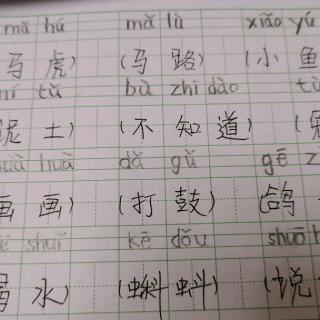 mǎ hú mǎ lù xiǎo yú
马虎) (马路) (小鱼
ní tǔ bù zhī dào tù
泥土) (不知道) (
huà huà dǎ gǔ gē z
画画) (打鼓) (鸽
hē shuǐ kē dǒu shuō h
喝水) (蝌蚪) (说